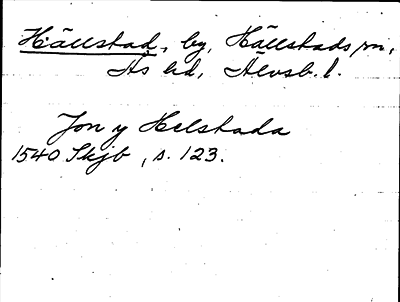 Hällstad, by, Hällstads sn,
Ås hd, Älvsb. l.
Jon y Helstada
1540 Skjb, s. 123.